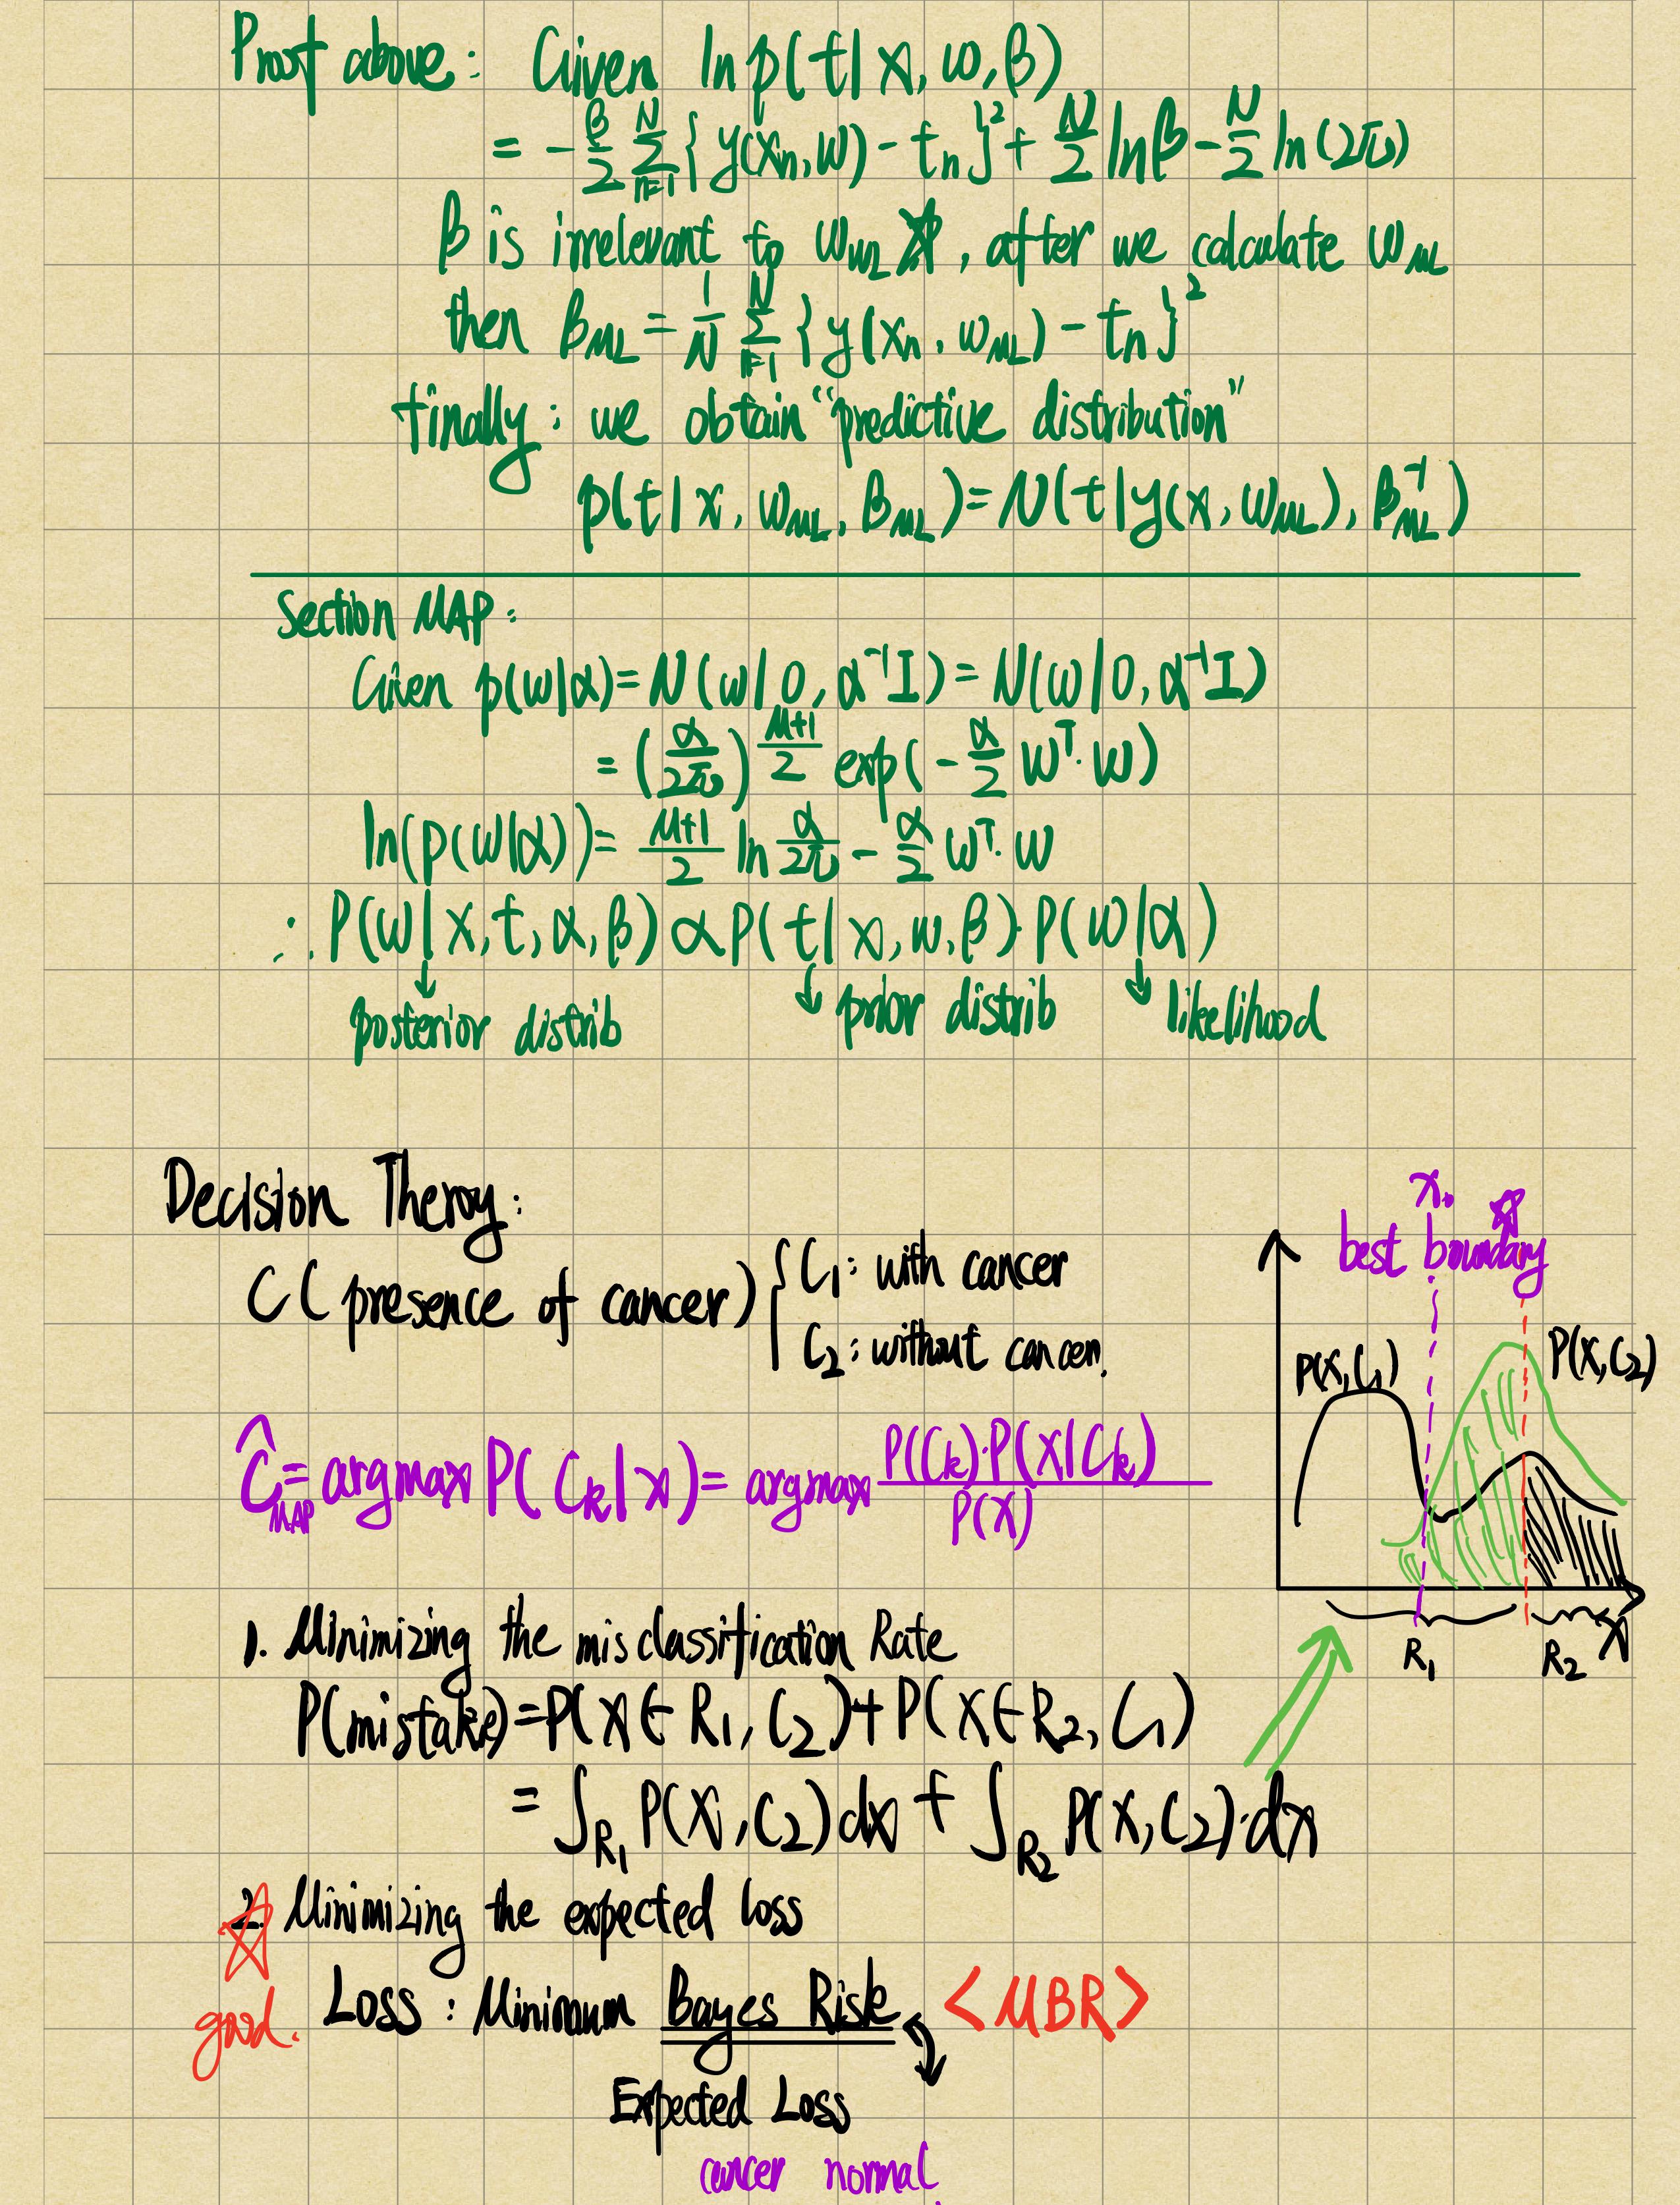 Proof above: Given ln p(t|x, w, β)
= -β/2 Σ_{n=1}^{N} { y(xn, w) - tn }² + N/2 lnβ - N/2 ln(2π)
β is irrelevant to w_ML, after we calculate w_ML
then β_ML = 1/N Σ_{n=1}^{N} { y(xn, w_ML) - tn }²
finally: we obtain "predictive distribution"
p(t|x, w_ML, β_ML) = N(t|y(x, w_ML), β_ML^-1)
Section MAP:
Given p(w|α) = N(w|0, α^-1 I) = N(w|0, α^-1 I)
= (α/2π)^{(M+1)/2} exp(-α/2 w^T·w)
ln(p(w|α)) = (M+1)/2 ln α/2π - α/2 w^T·w
∴ P(w|x, t, α, β) ∝ P(t|x, w, β)·P(w|α)
↓ ↓ prior distrib ↓ likelihood
posterior distrib
Decision Theroy:
C (presence of cancer) { C1: with cancer
C2: without cancer.
x0
best boundary
P(x, C1)
P(x, C2)
Ĉ_MAP = argmax P(Ck|x) = argmax P(Ck)·P(x|Ck) / P(x)
R1 R2 x
1. Minimizing the misclassification Rate
P(mistake) = P(x ∈ R1, C2) + P(x ∈ R2, C1)
= ∫_R1 P(x, C2) dx + ∫_R2 P(x, C2)·dx
2. Minimizing the expected loss
good.
Loss: Minimum Bayes Risk <MBR>
Expected Loss
cancer normal